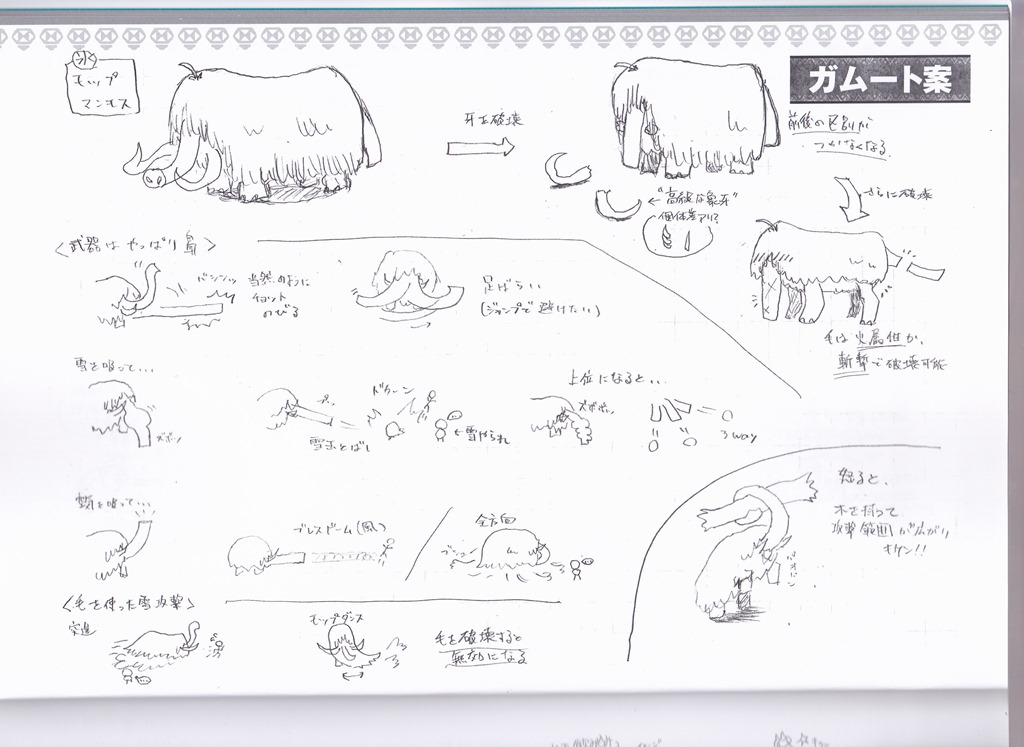 氷
モップ
マンモス
ガムート案
牙を破壊
前後の区別が
つかなくなる
"高級な象牙"
個体差アリ?
さらに破壊
毛は火属性か、
斬撃で破壊可能
<武器はやっぱり鼻>
当然のように
チョット
のびる
足ばらい
(ジャンプで避けたい)
雪を吸って...
ズボッ
雪玉とばし
ドカーン
←雪やられ
上位になると...
ズボボッ
3way
ブレスドーム(風)
全方向
怒ると、
木を持って
攻撃範囲が広がり
キケン!!
<毛を使った雪攻撃>
突進
モップダンス
毛を破壊すると
無効になる